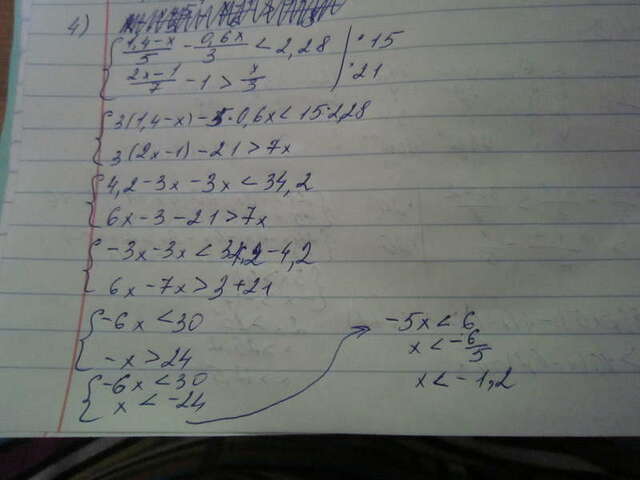 4)
{ (1,4-x)/5 - 0,6x/3 < 2,28 | ·15
{ (2x-1)/7 - 1 > x/3 | ·21
{ 3(1,4-x) - 5·0,6x < 15·2,28
{ 3(2x-1) - 21 > 7x
{ 4,2-3x-3x < 34,2
{ 6x-3-21 > 7x
{ -3x-3x < 34,2-4,2
{ 6x-7x > 3+21
{ -6x < 30
{ -x > 24
{ -6x < 30
{ x < -24
-5x < 6
x < -6/5
x < -1,2